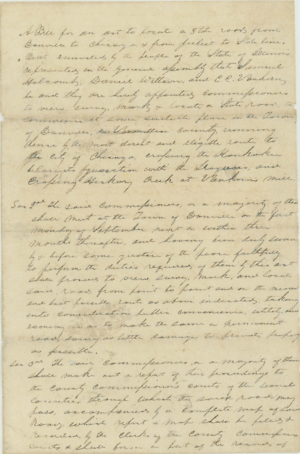 A Bill for an act to locate a State road from
Danville to Chicago & from
Be it enacted by the people of the State of Illinois
represented in the general assembly that Samuel
Holcomb, Daniel and E.C.
be and they are hereby appointed commissioners
to view, survey, mark & locate a State road
commencing at some suitable place in the Town
of Danville, in Vermilion County, running
thence by the most direct and eligible route to
the City of Chicago, crossing the Kankakee
with the and
crossing Hickory Creek at Van Horns Mill
Sec 2nd The said Commissioners, or a majority of them
shall meet at the Town of Danville on the first
Monday of September next or within three
months thereafter, and having been duly sworn
by before some justice of the peace, faithfully
to perform the duties required of them by this act
shall proceed to view, survey, mark, and locate
said road from point to point and on the nearest
and best possible route as above indicated, taking
into consideration public convenience
so as to make the same a permanent
road doing as little damage to private property
as possible.
Sec 3rd The said Commissioners, or a majority of them
shall make out a report of their proceedings to
the County Commissioners courts of the several
Counties through which the said road may
pass, accompanied by a complete map of said
Road, which report & map shall be filed &
recorded by the clerks of the County Commissioners
courts & shall form a part of the records of